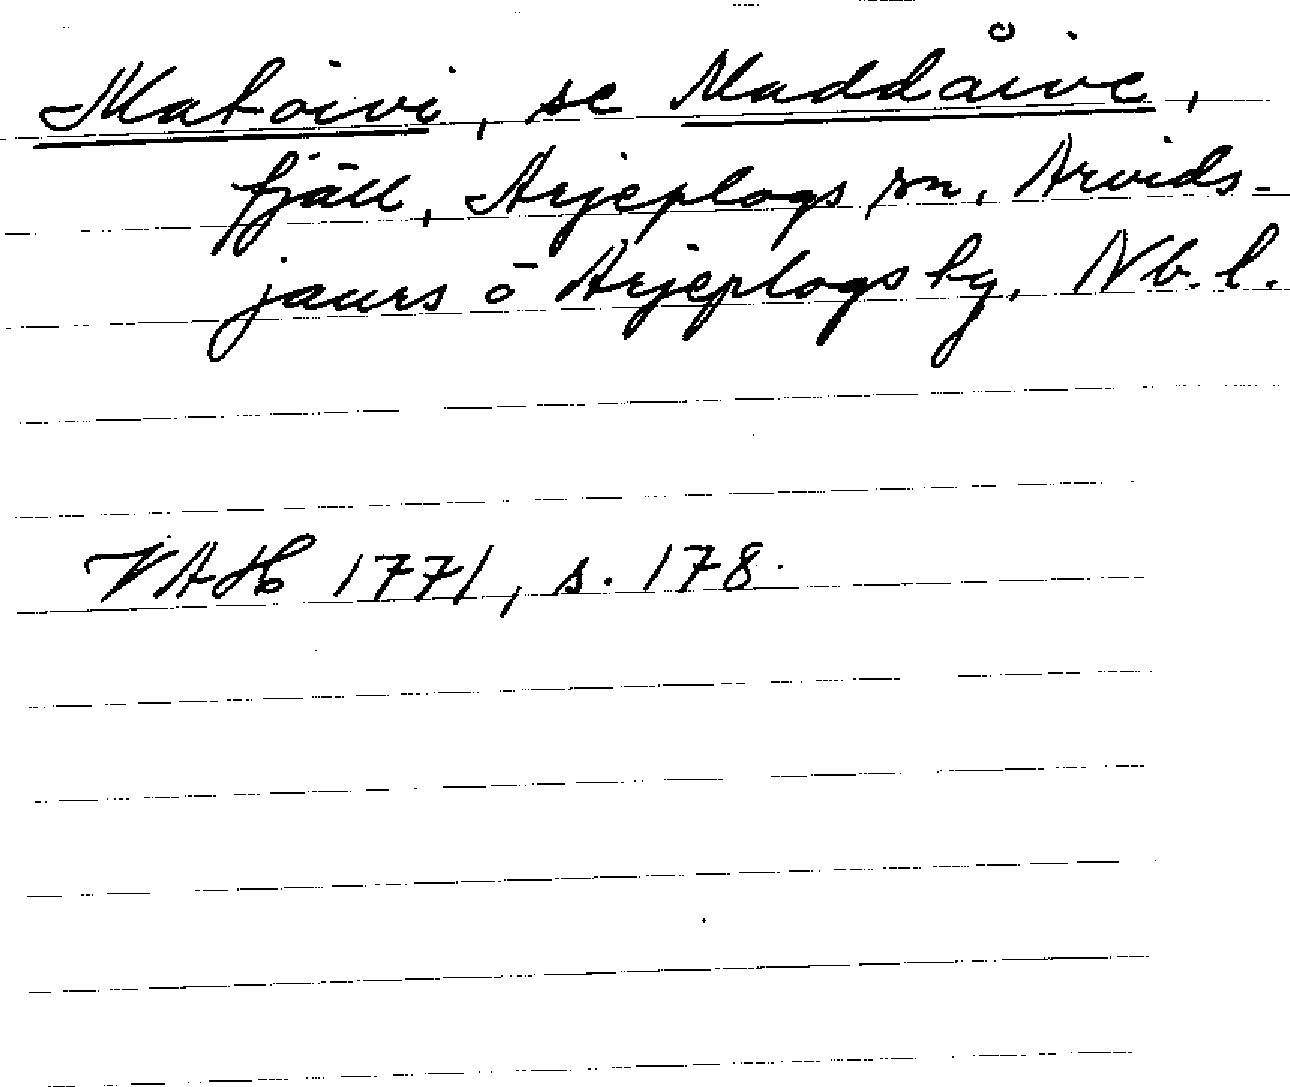 Matoivi, se Maddåive,
fjäll, Arjeplogs sn, Arvids-
jaurs o Arjeplogs tg, Nb. l.
VAH 1771, s. 178.